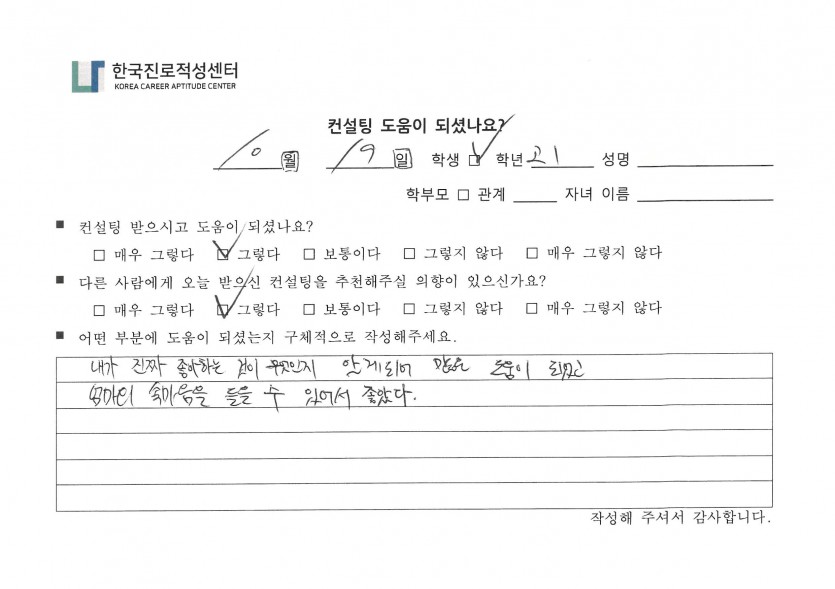 한국진로적성센터
KOREA CAREER APTITUDE CENTER
컨설팅 도움이 되셨나요?
10 월 19 일 학생 ☑ 학년 고1 성명
학부모 □ 관계 자녀 이름
■ 컨설팅 받으시고 도움이 되셨나요?
□ 매우 그렇다 ☑ 그렇다 □ 보통이다 □ 그렇지 않다 □ 매우 그렇지 않다
■ 다른 사람에게 오늘 받으신 컨설팅을 추천해주실 의향이 있으신가요?
□ 매우 그렇다 ☑ 그렇다 □ 보통이다 □ 그렇지 않다 □ 매우 그렇지 않다
■ 어떤 부분에 도움이 되셨는지 구체적으로 작성해주세요.
내가 진짜 좋아하는 것이 무엇인지 알게되어 많은 도움이 되었고
엄마의 속마음을 들을 수 있어서 좋았다.
작성해 주셔서 감사합니다.